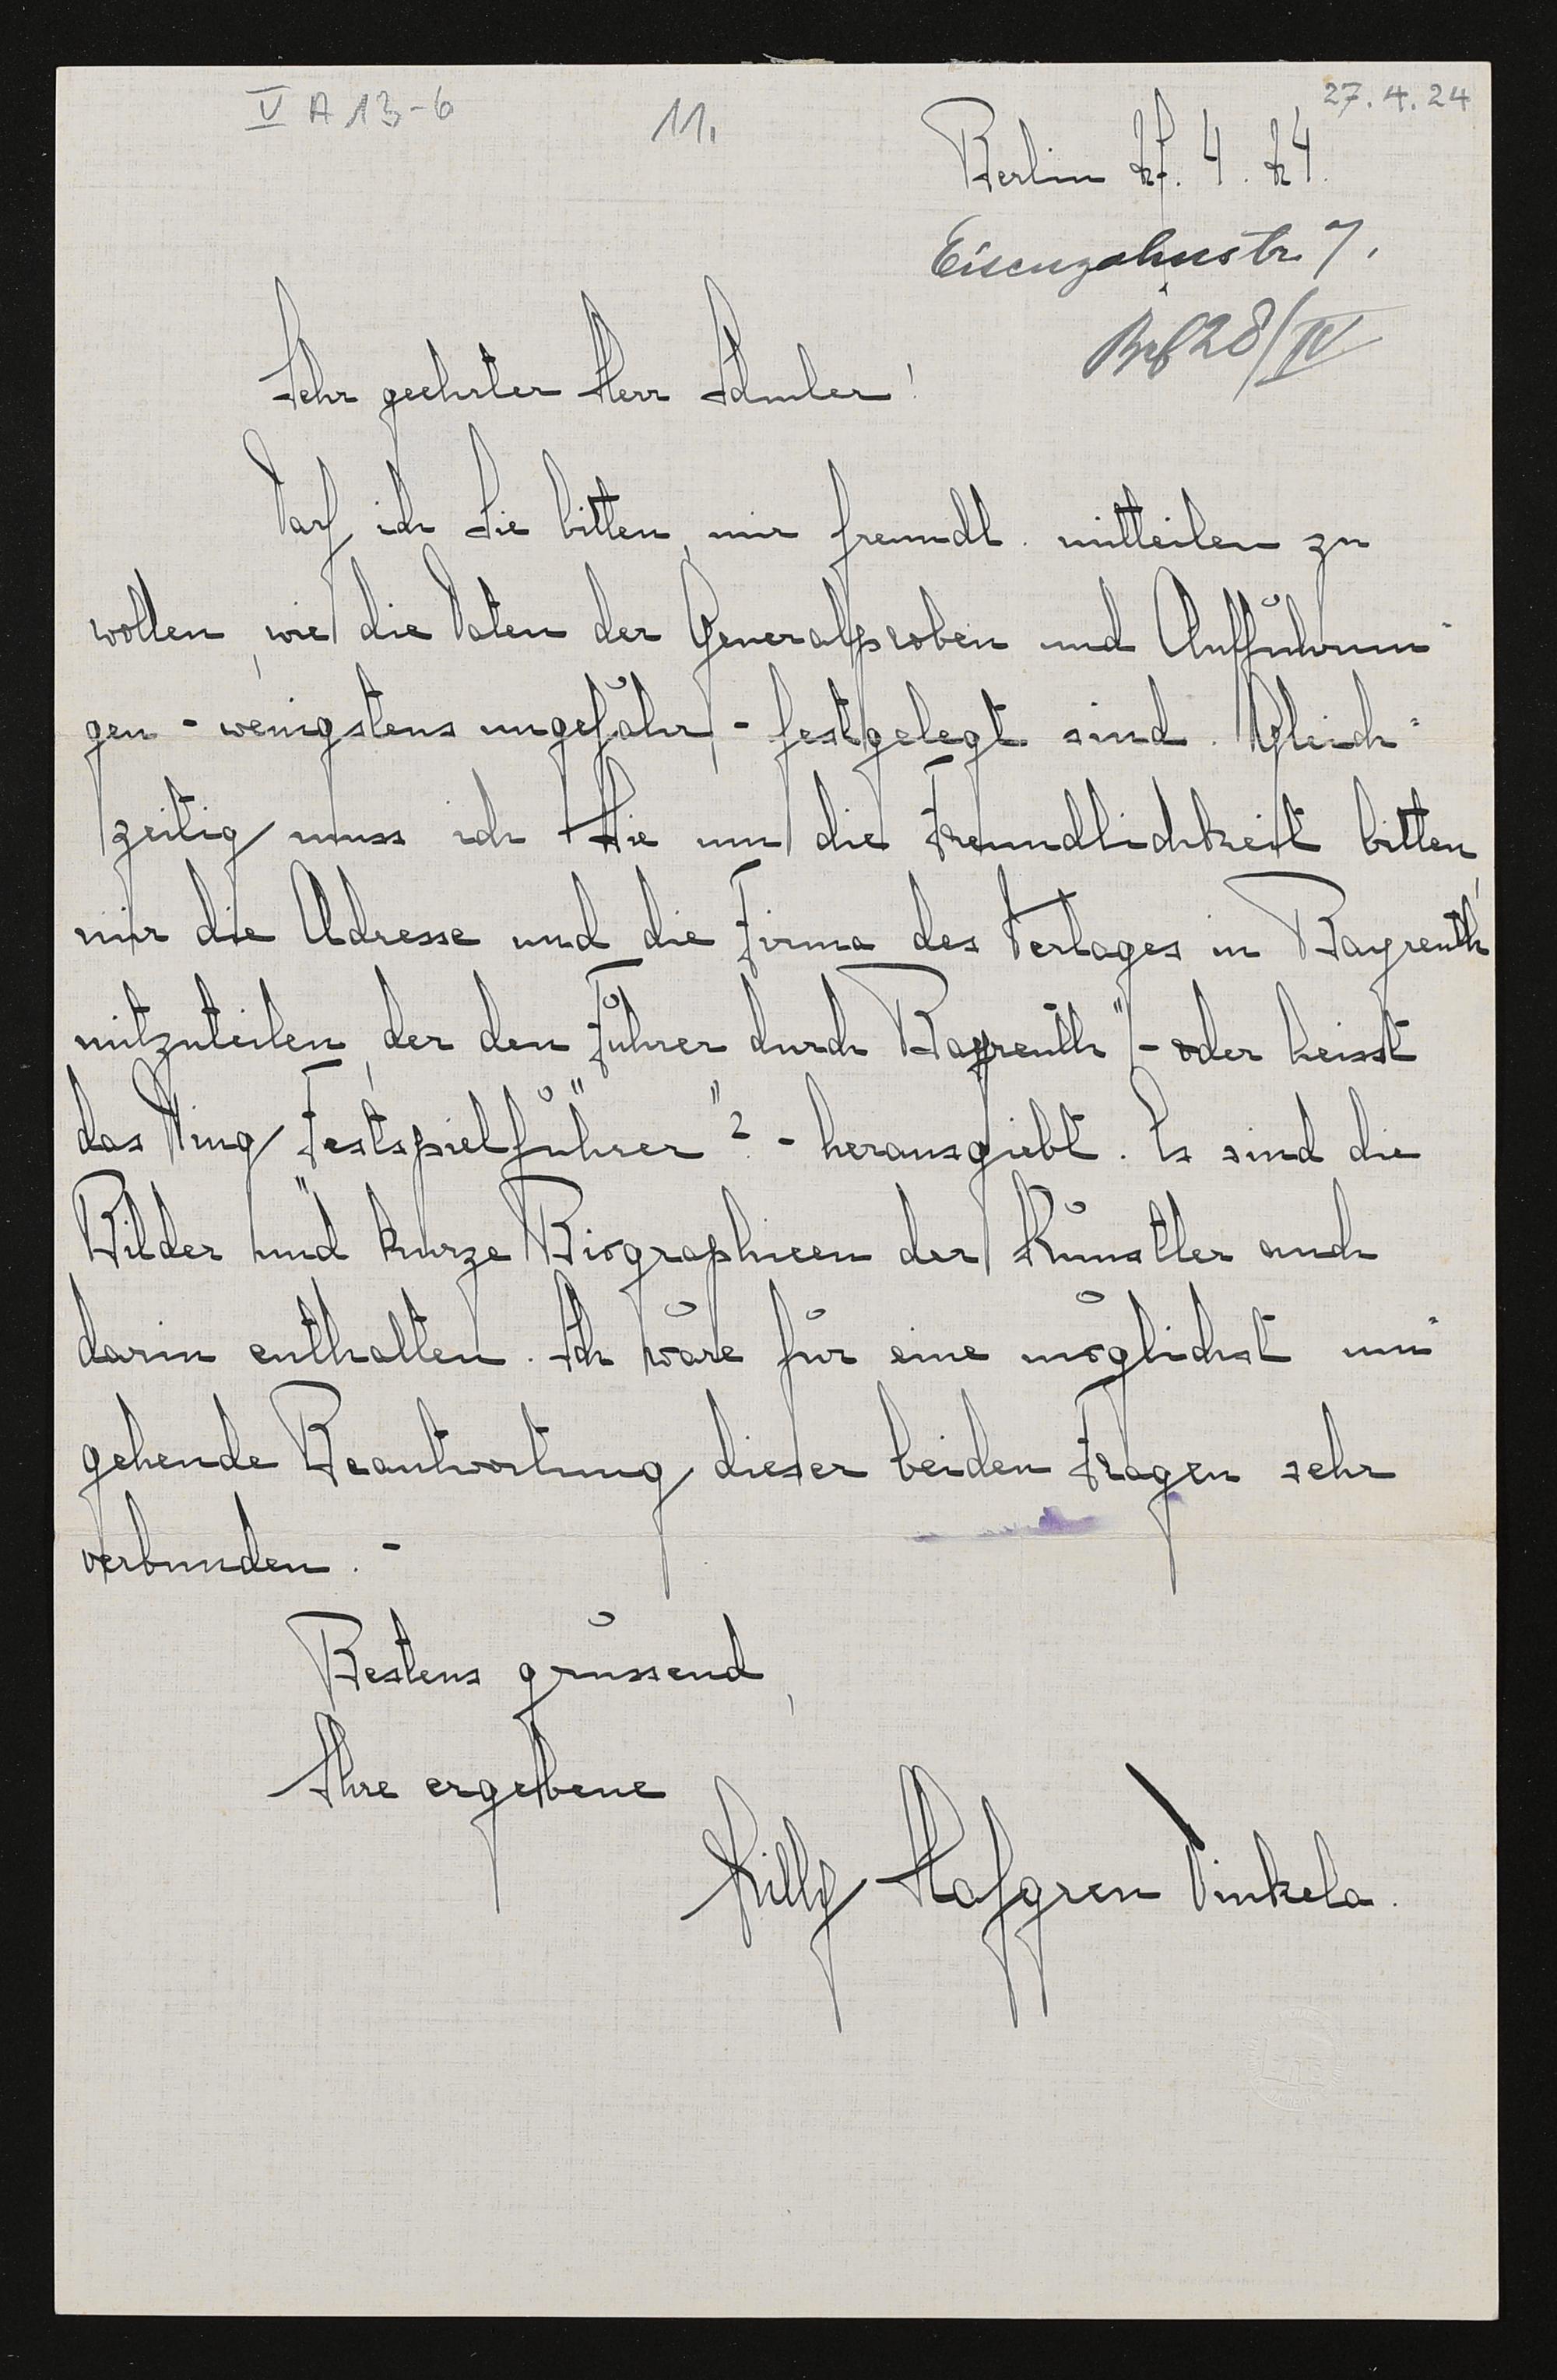 V A 13-6
11.
27.4.24
Berlin 27. 4. 24.
Eisenzahnstr. 7.
28/IV
Sehr geehrter Herr Schuler!
Darf ich Sie bitten, mir freundl. mitteilen zu
wollen, wie die Daten der Generalproben und Aufführun-
gen - wenigstens ungefähr, - festgelegt sind. Gleich-
zeitig muss ich Sie um die Freundlichkeit bitten,
mir die Adresse und die Firma des Verlages in Bayreuth
mitzuteilen, der den „Führer durch Bayreuth" - oder heisst
das Ding „Festspielführer"? - herausgiebt. Es sind die
Bilder und kurze Biographieen der Künstler auch
darin enthalten. Ich wäre für eine möglichst um-
gehende Beantwortung dieser beiden Fragen sehr
verbunden. -
Bestens grüssend,
Ihre ergebene
Lilly Hafgren Dinkela.